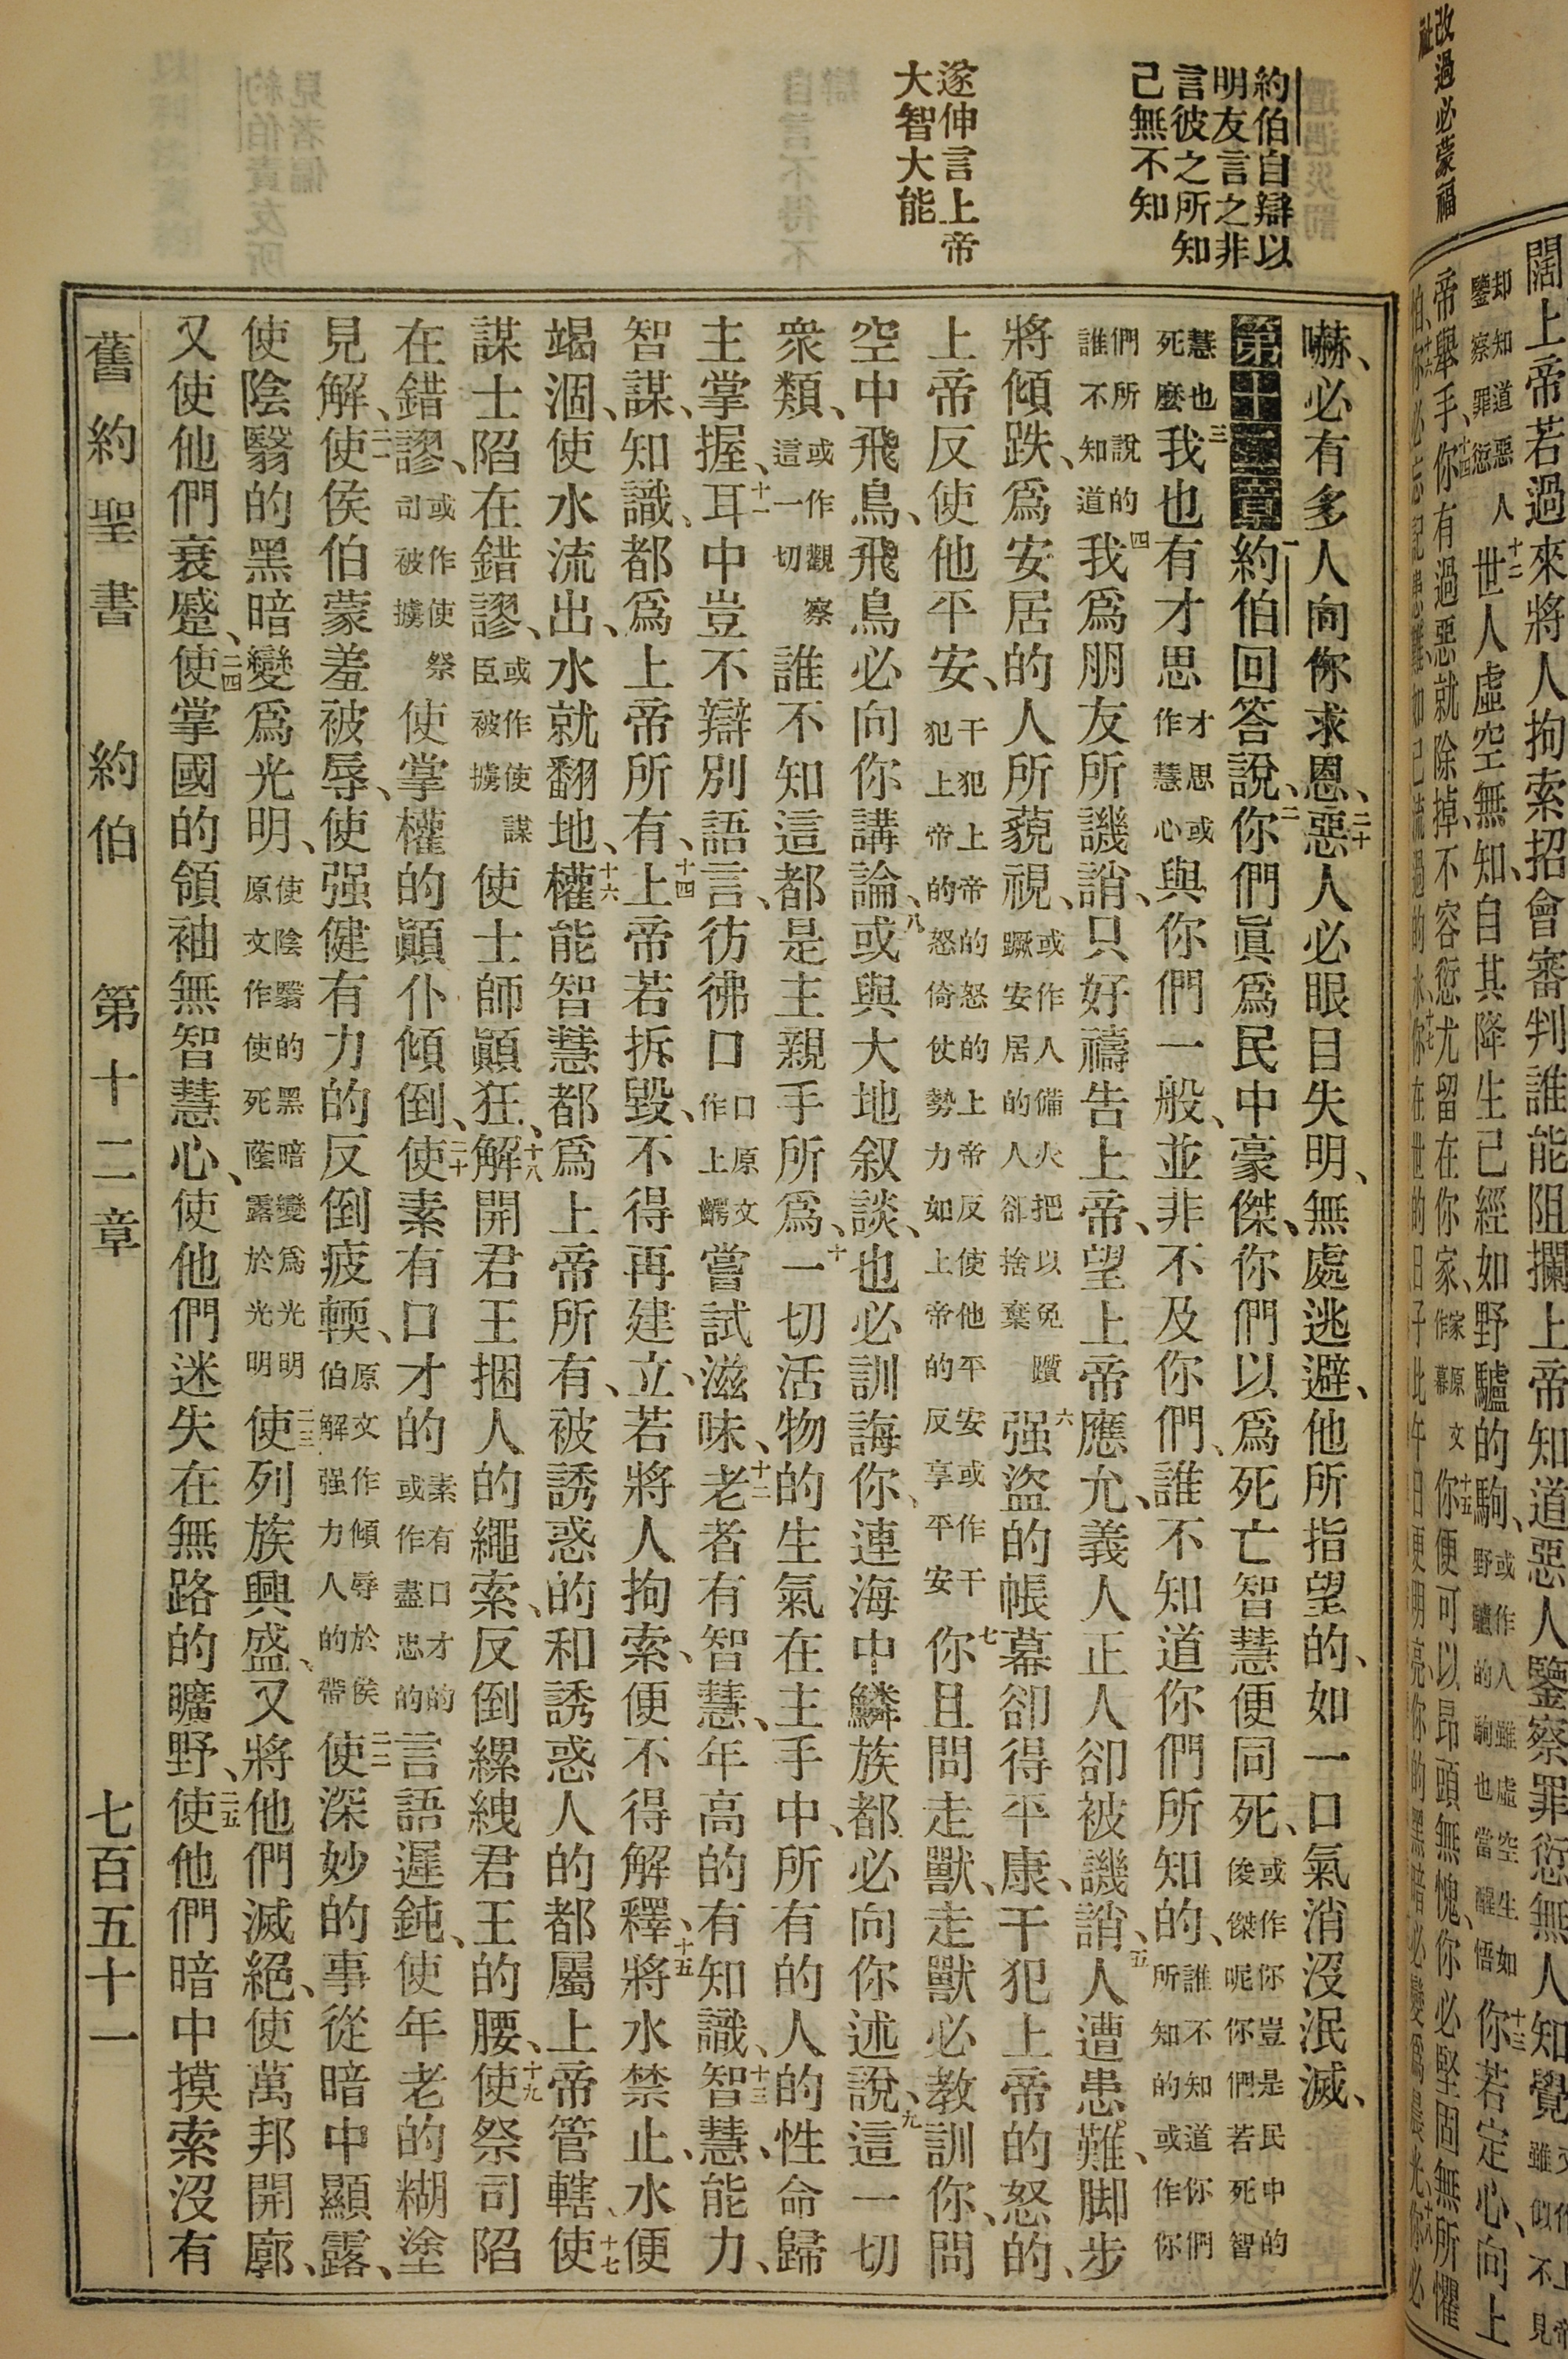 改過必蒙福
祉
闊上帝若過來將人拘索招會審判誰能阻攔上帝知道惡人鑒察罪愆無人知覺
却知道惡人鑒察罪愆十二世人虛空無知、自其降生已經如野驢的駒、或作人雖虛空生如野驢的駒也當醒悟十三你若定心、向上
帝舉手、十四你有過惡就除掉、不容愆尤留在你家、家原文作幕十五你便可以昂頭無愧、你必堅固無所懼
怕、十六你必忘記患難、如已流過的水、十七你在世的日子比午日更明亮、你的黑暗必變爲晨光、十八你必
約伯自辯以
明友言之非
言彼之所知
己無不知
遂伸言上帝
大智大能
嚇、必有多人向你求恩、二十惡人必眼目失明、無處逃避、他所指望的、如一口氣消沒泯滅、
第十二章一約伯回答說、二你們眞爲民中豪傑、你們以爲死亡智慧便同死、或作你豈是民中的俊傑呢你們若死智
慧也死麼三我也有才思才思或作慧心與你們一般、並非不及你們、誰不知道你們所知的、誰不知道你們所知的或作你
們所說的誰不知道四我爲朋友所譏誚、只好禱告上帝、望上帝應允、義人正人卻被譏誚、五人遭患難、脚步
將傾跌、爲安居的人所藐視、或作人備火把以免躓蹶安居的人卻捨棄六强盜的帳幕卻得平康、干犯上帝的怒的、
上帝反使他平安、干犯上帝的怒的上帝反使他平安或作干犯上帝的怒倚仗勢力如上帝的反享平安七你且問走獸、走獸必教訓你、問
空中飛鳥、飛鳥必向你講論、八或與大地叙談、也必訓誨你、連海中鱗族都必向你述說、九這一切
衆類、或作觀察這一切誰不知這都是主親手所爲、十一切活物的生氣在主手中、所有的人的性命歸
主掌握、十一耳中豈不辯別語言、彷彿口口原文作上齶嘗試滋味、十二老者有智慧、年高的有知識、十三智慧、能力、
智謀、知識、都爲上帝所有、十四上帝若拆毀、不得再建立、若將人拘索、便不得解釋、十五將水禁止、水便
竭涸、使水流出、水就翻地、十六權能智慧都爲上帝所有、被誘惑的和誘惑人的都屬上帝管轄、十七使
謀士陷在錯謬、或作使謀臣被擄使士師顚狂、十八解開君王捆人的繩索、反倒縲絏君王的腰、十九使祭司陷
在錯謬、或作使祭司被擄使掌權的顚仆傾倒、二十使素有口才的素有口才的或作盡忠的言語遲鈍、使年老的糊塗
見解、二一使侯伯蒙羞被辱、使强健有力的反倒疲輭、原文作傾辱於侯伯解强力人的帶二二使深妙的事從暗中顯露、
使陰翳的黑暗變爲光明、使陰翳的黑暗變爲光明原文作使死蔭露於光明二三使列族興盛、又將他們滅絕、使萬邦開廓、
又使他們衰蹙、二四使掌國的領袖無智慧心、使他們迷失在無路的曠野、二五使他們暗中摸索沒有
舊約聖書　約伯　第十二章　七百五十一